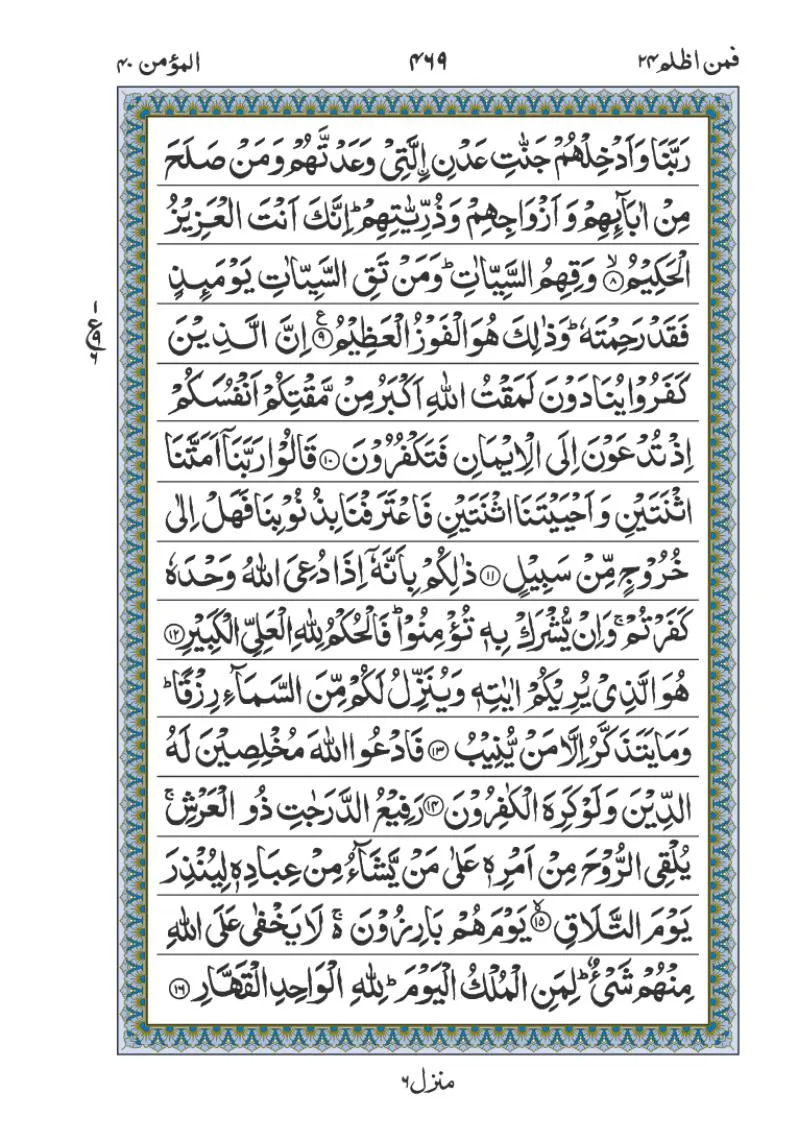 فمن اظلم ۲۴
۴۶۹
المؤمن ۴۰
رَبَّنَا وَاَدۡخِلۡهُمۡ جَنّٰتِ عَدۡنِ ۨالَّتِىۡ وَعَدْتَّهُمۡ وَمَنۡ صَلَحَ
مِنۡ اٰبَآٮِٕهِمۡ وَاَزۡوَاجِهِمۡ وَذُرِّيّٰتِهِمۡؕ اِنَّكَ اَنۡتَ الۡعَزِيۡزُ
الۡحَكِيۡمُ ۙ‏﴿۸﴾ وَقِهِمُ السَّيِّاٰتِؕ وَمَنۡ تَقِ السَّيِّاٰتِ يَوۡمَٮِٕذٍ
فَقَدۡ رَحِمۡتَهٗؕ وَذٰلِكَ هُوَ الۡفَوۡزُ الۡعَظِيۡمُ ﴿۹﴾ اِنَّ الَّذِيۡنَ
كَفَرُوۡا يُنَادَوۡنَ لَمَقۡتُ اللّٰهِ اَكۡبَرُ مِنۡ مَّقۡتِكُمۡ اَنۡفُسَكُمۡ
اِذۡ تُدۡعَوۡنَ اِلَى الۡاِيۡمَانِ فَتَكۡفُرُوۡنَ ﴿۱۰﴾ قَالُوۡا رَبَّنَاۤ اَمَتَّنَا
اثۡنَتَيۡنِ وَاَحۡيَيۡتَنَا اثۡنَتَيۡنِ فَاعۡتَرَفۡنَا بِذُنُوۡبِنَا فَهَلۡ اِلٰى
خُرُوۡجٍ مِّنۡ سَبِيۡلٍ ﴿۱۱﴾ ذٰلِكُمۡ بِاَنَّهٗۤ اِذَا دُعِىَ اللّٰهُ وَحۡدَهٗ
كَفَرۡتُمۡۚ وَاِنۡ يُّشۡرَكۡ بِهٖ تُؤۡمِنُوۡاؕ فَالۡحُكۡمُ لِلّٰهِ الۡعَلِىِّ الۡكَبِيۡرِ ﴿۱۲﴾
هُوَ الَّذِىۡ يُرِيۡكُمۡ اٰيٰتِهٖ وَيُنَزِّلُ لَكُمۡ مِّنَ السَّمَآءِ رِزۡقًاؕ
وَمَا يَتَذَكَّرُ اِلَّا مَنۡ يُّنِيۡبُ ﴿۱۳﴾ فَادۡعُوا اللّٰهَ مُخۡلِصِيۡنَ لَهُ
الدِّيۡنَ وَلَوۡ كَرِهَ الۡكٰفِرُوۡنَ ﴿۱۴﴾ رَفِيۡعُ الدَّرَجٰتِ ذُو الۡعَرۡشِۚ
يُلۡقِى الرُّوۡحَ مِنۡ اَمۡرِهٖ عَلٰى مَنۡ يَّشَآءُ مِنۡ عِبَادِهٖ لِيُنۡذِرَ
يَوۡمَ التَّلَاقِ ۙ‏﴿۱۵﴾ يَوۡمَ هُمۡ بَارِزُوۡنَ ۚ لَا يَخۡفٰى عَلَى اللّٰهِ
مِنۡهُمۡ شَىۡءٌؕ لِمَنِ الۡمُلۡكُ الۡيَوۡمَؕ لِلّٰهِ الۡوَاحِدِ الۡقَهَّارِ ﴿۱۶﴾
منزل ۶